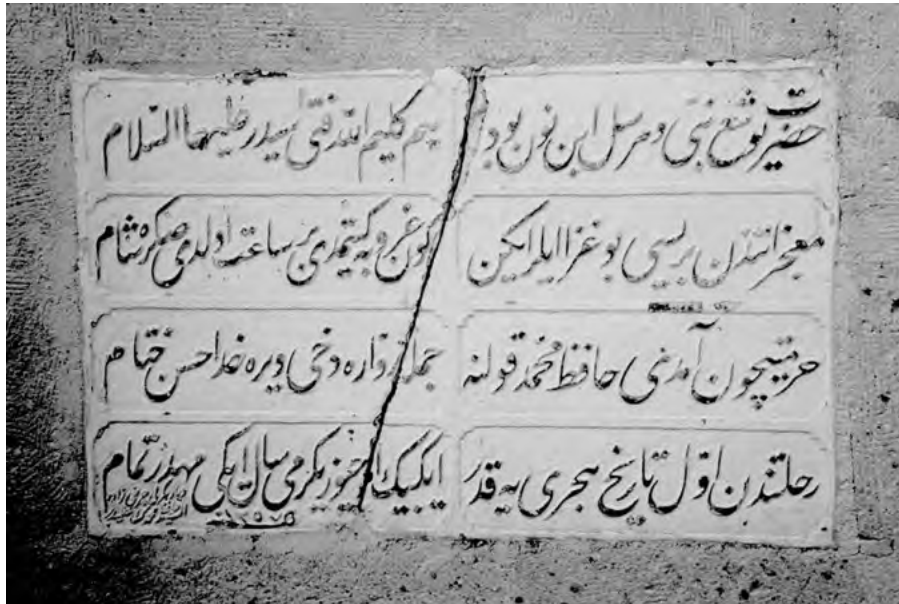 حضرت یوشع نبی ومرسل ابن نون بودر هم کلیم الله فتی سیدر علیهما السلام
معجزاتندن بریسی بو غزا ایلر ایکن کون غروبه کیتمدی بر ساعت اولدی صکره شام
حرمتیچون آمدنی حافظ محمد قولنه جمله زواره دخی ویره خدا حسن ختام
رحلتندن اول تاریخ هجری یه قدر ایکیبیک اوچیوز یکرمی سال ایکی مهدر تمام